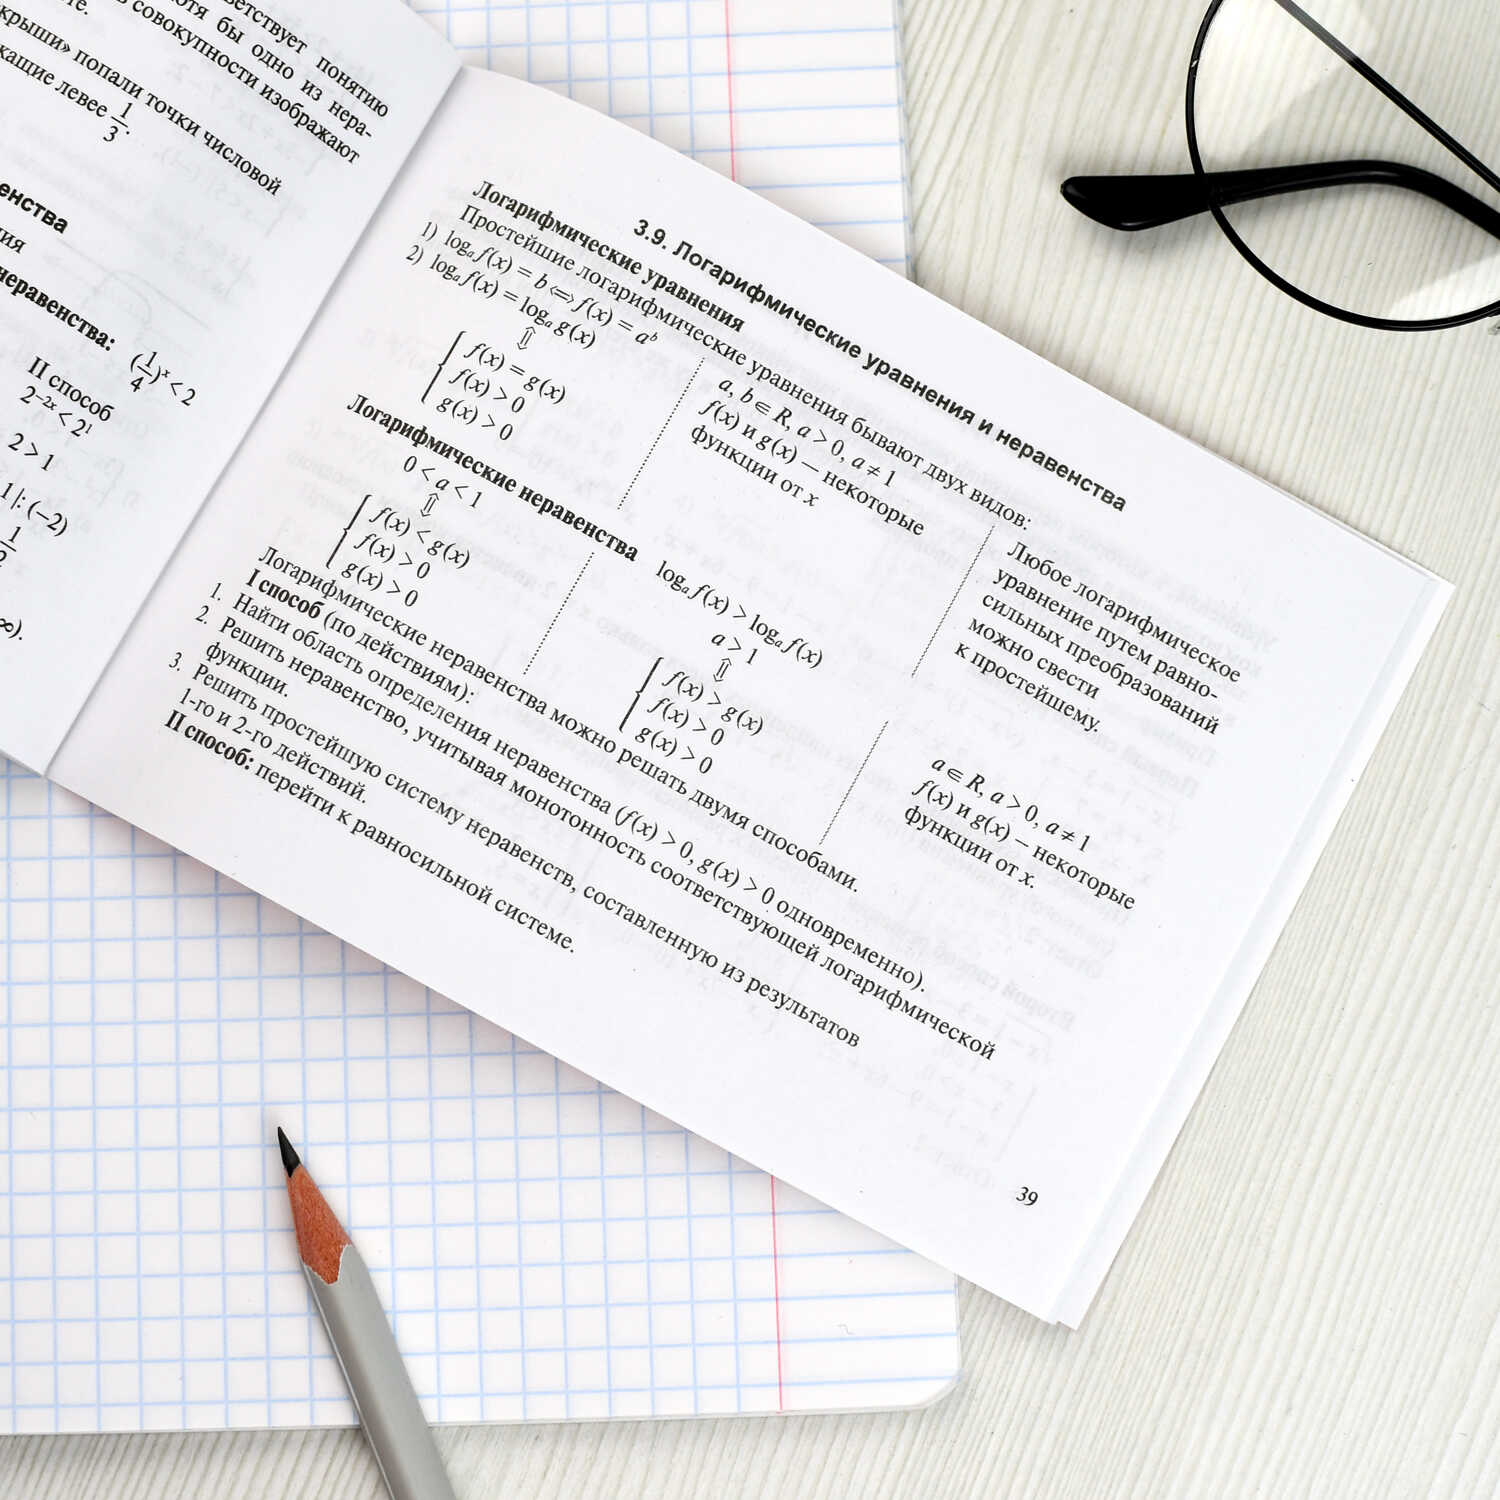 ветствует понятию
хотя бы одно из нера-
совокупности изображают
крыши» попали точки числовой
жащие левее 1/3.
енства
ния
неравенства: (1/4)ˣ < 2
II способ
2⁻²ˣ < 2¹
2 > 1
1 |: (−2)
1/2
∞).
3.9. Логарифмические уравнения и неравенства
Логарифмические уравнения
Простейшие логарифмические уравнения бывают двух видов:
1) logₐ f(x) = b ⟺ f(x) = aᵇ
2) logₐ f(x) = logₐ g(x)
⇕
{ f(x) = g(x)
f(x) > 0
g(x) > 0
a, b ∈ R, a > 0, a ≠ 1
f(x) и g(x) — некоторые
функции от x
Любое логарифмическое
уравнение путем равно-
сильных преобразований
можно свести
к простейшему.
Логарифмические неравенства
logₐ f(x) > logₐ f(x)
0 < a < 1
⇕
{ f(x) < g(x)
f(x) > 0
g(x) > 0
a > 1
⇕
{ f(x) > g(x)
f(x) > 0
g(x) > 0
a ∈ R, a > 0, a ≠ 1
f(x) и g(x) – некоторые
функции от x.
Логарифмические неравенства можно решать двумя способами.
I способ (по действиям):
1. Найти область определения неравенства (f(x) > 0, g(x) > 0 одновременно).
2. Решить неравенство, учитывая монотонность соответствующей логарифмической
функции.
3. Решить простейшую систему неравенств, составленную из результатов
1-го и 2-го действий.
II способ: перейти к равносильной системе.
39